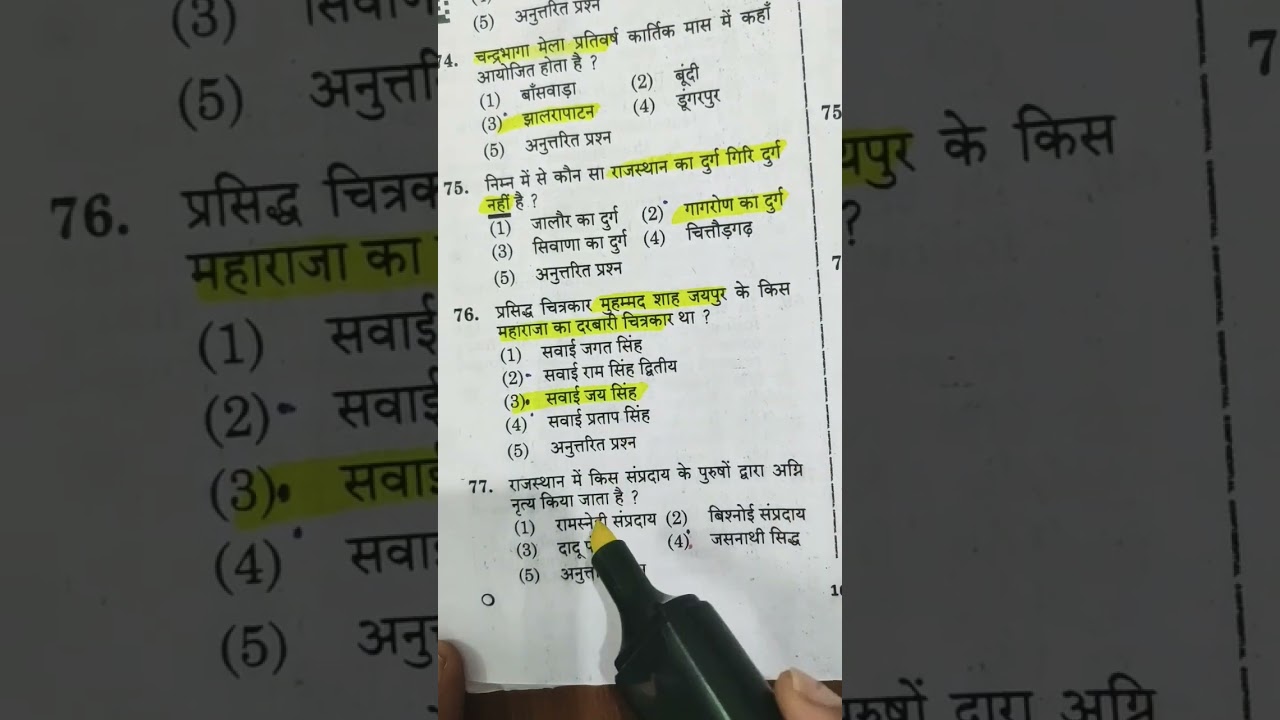 (5) अनुत्तरित प्रश्न
74. चन्द्रभागा मेला प्रतिवर्ष कार्तिक मास में कहाँ
आयोजित होता है ?
(1) बाँसवाड़ा (2) बूंदी
(3) झालरापाटन (4) डूंगरपुर
(5) अनुत्तरित प्रश्न
75. निम्न में से कौन सा राजस्थान का दुर्ग गिरि दुर्ग
नहीं है ?
(1) जालौर का दुर्ग (2) गागरोण का दुर्ग
(3) सिवाणा का दुर्ग (4) चित्तौड़गढ़
(5) अनुत्तरित प्रश्न
76. प्रसिद्ध चित्रकार मुहम्मद शाह जयपुर के किस
महाराजा का दरबारी चित्रकार था ?
(1) सवाई जगत सिंह
(2) सवाई राम सिंह द्वितीय
(3) सवाई जय सिंह
(4) सवाई प्रताप सिंह
(5) अनुत्तरित प्रश्न
77. राजस्थान में किस संप्रदाय के पुरुषों द्वारा अग्नि
नृत्य किया जाता है ?
(1) रामस्नेही संप्रदाय (2) बिश्नोई संप्रदाय
(3) दादू (4) जसनाथी सिद्ध
(5)